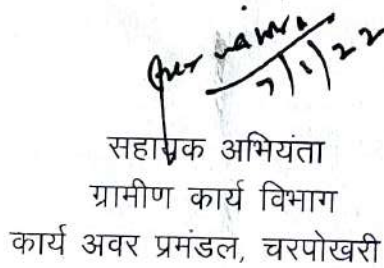 7/1/22
सहायक अभियंता
ग्रामीण कार्य विभाग
कार्य अवर प्रमंडल, चरपोखरी